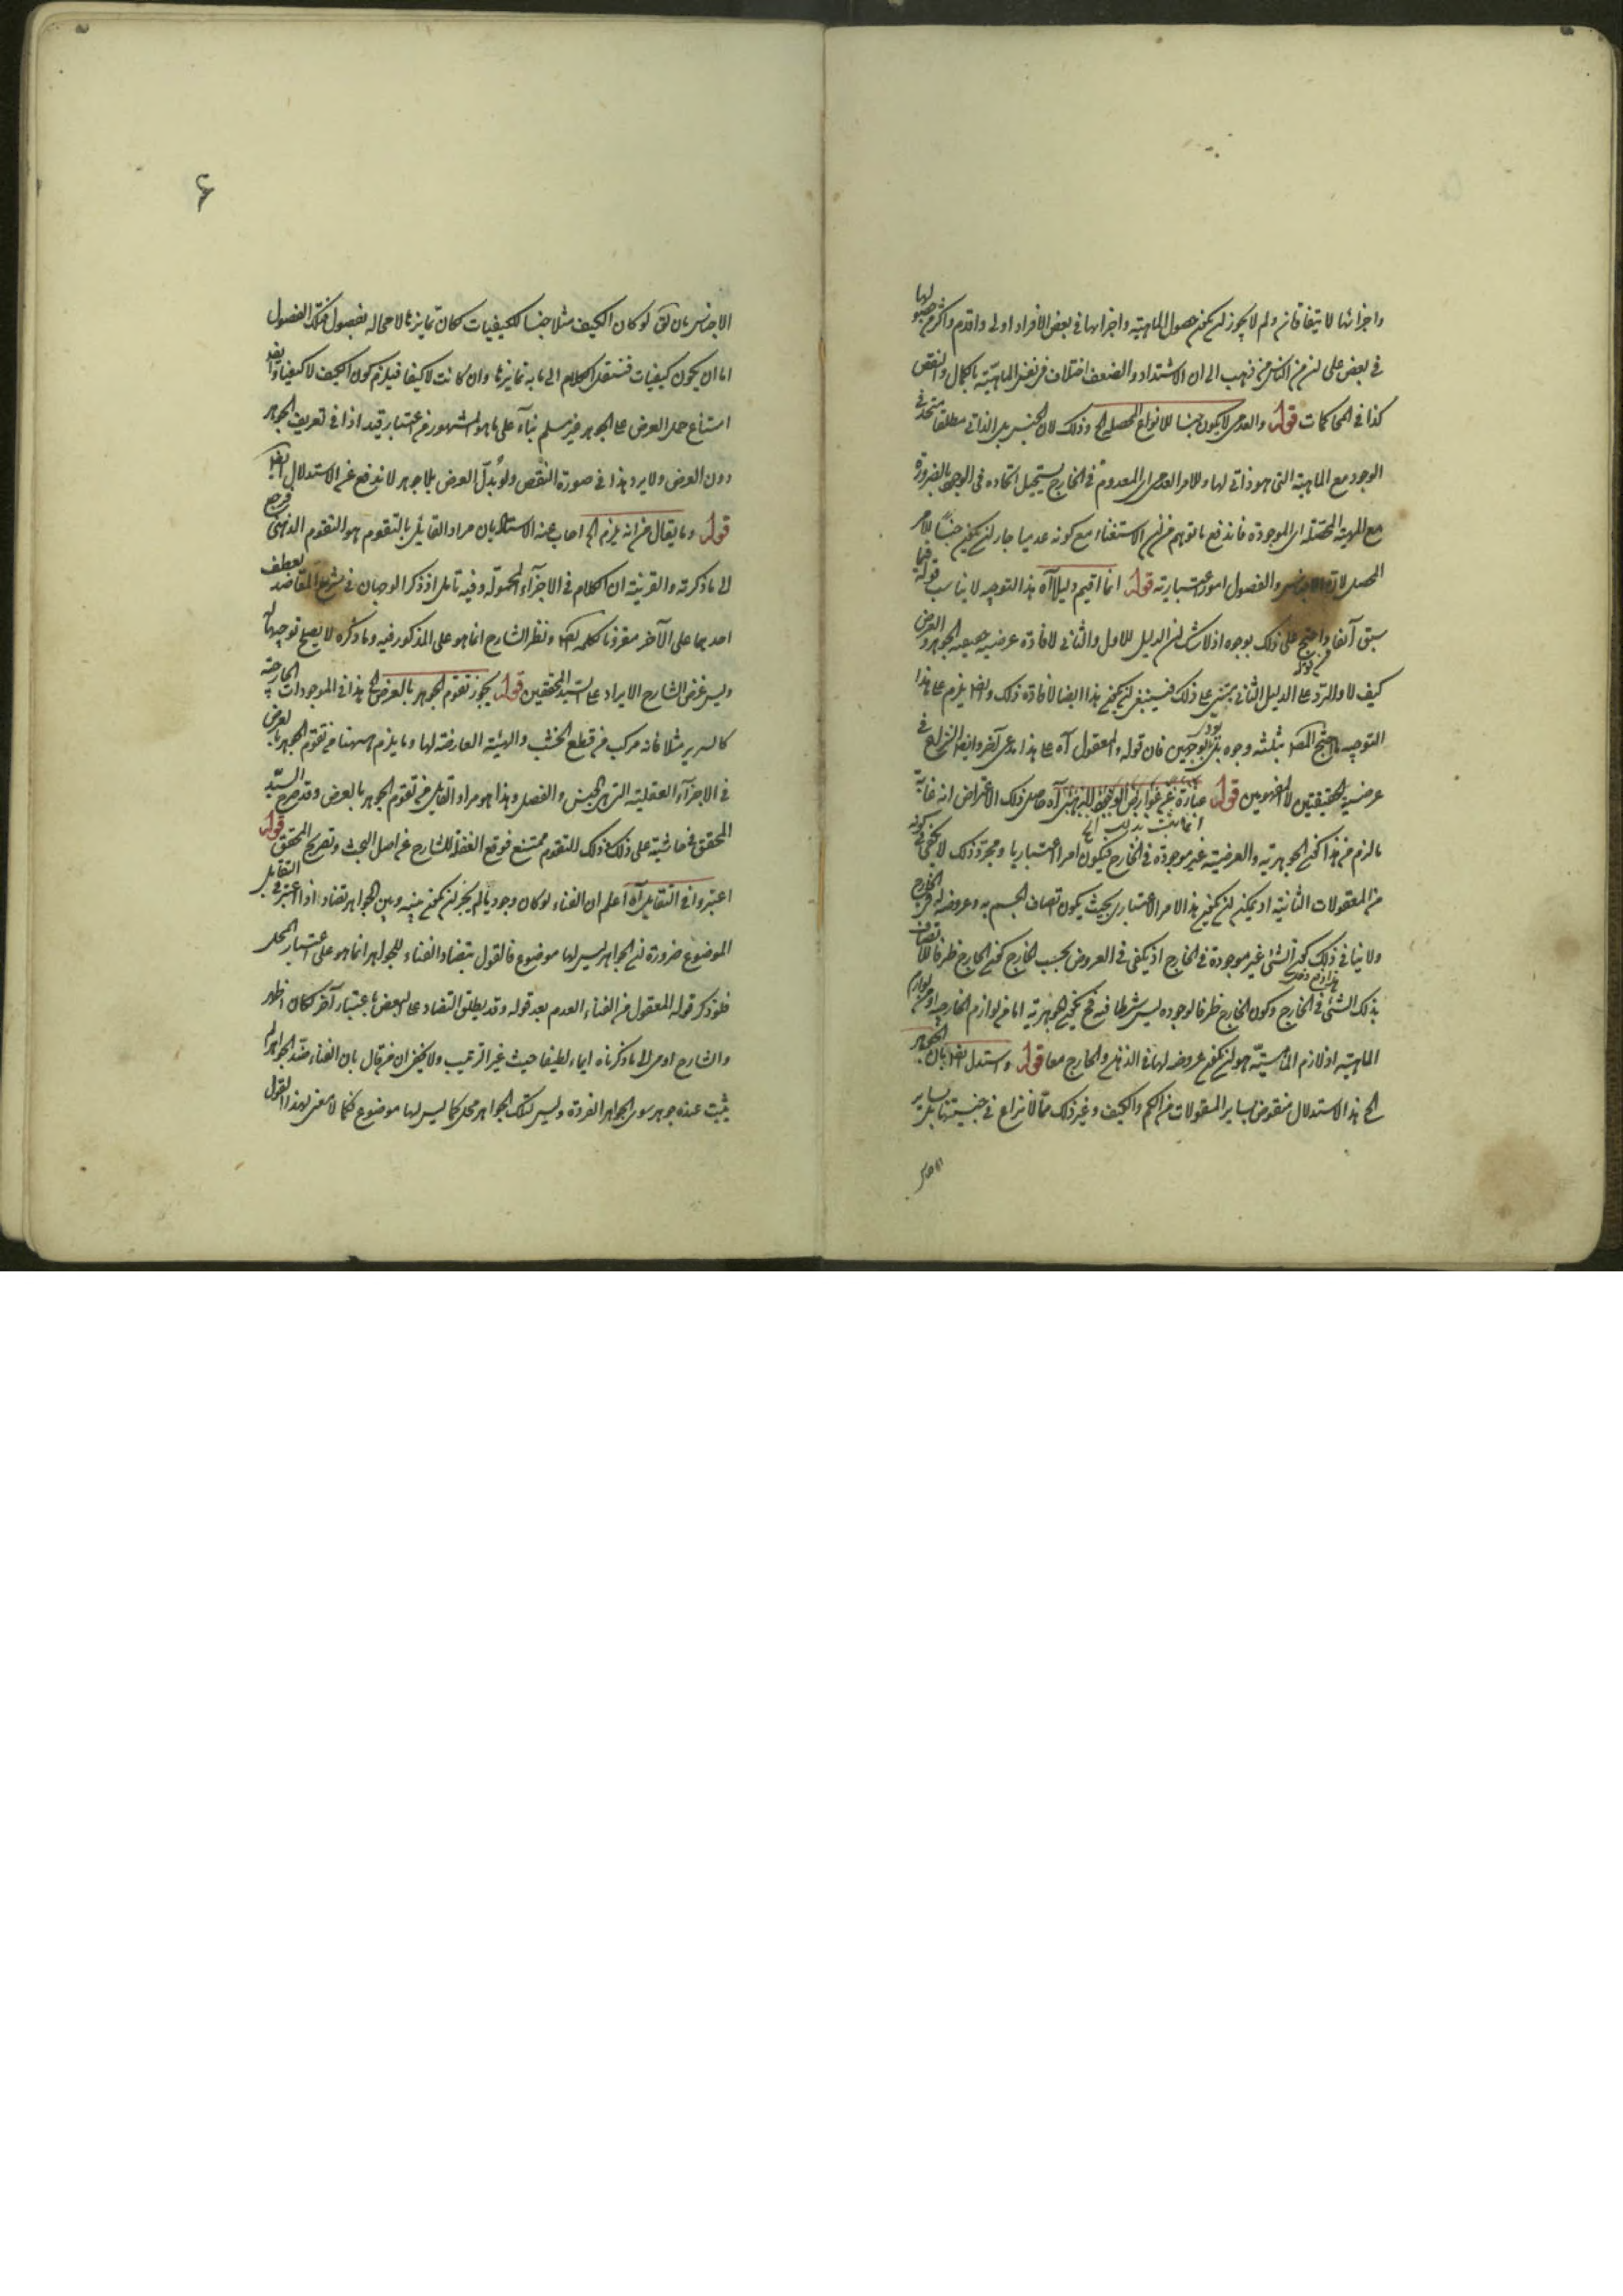 واجزائها لا يتفاوتان ولم لا يجوز ان يكون حصول الماهية واجزائها في بعض الافراد اولى واقدم واكثر من حصولها
في بعض على ان من الناس من ذهب الى ان الاشتداد والضعف اختلاف في نفس الماهية بالكمال والنقص
كذا في المحاكمات قوله والعدمي لا يكون جنسا للانواع المحصلة الخ وذلك لان الجنس بل الذاتي مطلقا متحد في
الوجود مع الماهية التي هو ذاتي لها والامر العدمي اي المعدوم في الخارج يستحيل اتحاده في الوجود بالضرورة
مع المهية المحصلة اي الموجودة فاندفع ما توهم من ان الاستغناء مع كونه عدميا جاز ان يكون جنسا للامر
المحصل لان الاجناس والفصول امور اعتبارية قوله انما اقيم دليلا آه هذا التوجيه لا يناسب قوله فيما
سبق آنفا واحتج على ذلك بوجوه اذ لا شك ان الدليل الاول والثاني لافادة عرضية الجوهر والعرض
كيف لا والترد على الدليل الثاني مبني على ذلك فينبغي ان يكون هذا ايضا لافادة ذلك وايضا يلزم على هذا
التوجيه احتج المصـ بثلثة وجوه بل بوجهين فان قوله والمعقول آه على هذا مدعى آخر وايضا النزاع في
عرضية الحقيقتين لا المفهومين قوله عبارة عن عوارض آه حاصل ذلك الاعتراض انه غاية
ما لزم من هذا كون الجوهرية والعرضية غير موجودة في الخارج فيكون امرا اعتباريا ومجرد ذلك لا يكفي في كونه
من المعقولات الثانية اذ يمكن ان يكون هذا الامر الاعتباري بحيث يكون اتصاف الجسم به وعروضه له في الخارج
ولا ينافي ذلك كون الشئ غير موجودة في الخارج اذ يكفي في العروض بحسب الخارج كون الخارج ظرفا للاتصاف
بذلك الشئ في الخارج وكون الخارج ظرفا لوجوده ليس شرطا فيه فح يكون الجوهرية اما من لوازم الخارجية او من لوازم
الماهية اذ لازم الماهية هو ان يكون عروضه لها في الذهن والخارج معا قوله واستدل ايضا بان الجوهر
الخ هذا الاستدلال منقوض بساير المقولات من الكم والكيف وغير ذلك مما لا نزاع في جنسيتها بل بساير
الاجناس بان يق لو كان الكيف مثلا جنسا للكيفيات لكان تمايزها لا محاله بفصول فتلك الفصول
اما ان يكون كيفيات فننقل الكلام الى ما به تمايزها وان كانت لا كيفا فيلزم كون الكيف لا كيفا وايضا
امتناع حمل العرض على الجوهر غير مسلم بناء على ما هو المشهور من اعتبار قيد اذا في تعريف الجوهر
دون العرض ولا يرد هذا في صورة النقض ولو بدل العرض بلا جوهر لاندفع عن الاستدلال ايضا
قوله وما يقال من انه يلزم الخ اجاب عنه الاستاد بان مراد القايل بالتقوم هو التقوم الذهني فرجع
الى ما ذكرته والقرينة ان الكلام في الاجزاء المحمولة وفيه تامل اذ ذكر الوجهان في شرح المقاصد بعطف
احديهما على الآخر مقرونا بكلمة ايضا ونظر الشارح انما هو على المذكور فيه وما ذكره لا يصلح توجيها له
وليس غرض الشارح الايراد على السيد المحققين قوله يجوز تقوم الجوهر بالعرض الخ هذا في الموجودات الخارجية
كالسرير مثلا فانه مركب من قطع الخشب والهيئة العارضة لها وما يلزم ههنا من تقوم الجوهر بالعرض
في الاجزاء العقلية التي هي الجنس والفصل وهذا هو مراد القايل من تقوم الجوهر بالعرض وقد صرح السيد
المحقق في حاشيته على ذلك وذلك التقوم ممتنع فوقع الغفلة للشارح عن اصل البحث وتصريح المحقق قوله
اعتبروا في التقابل آه اعلم ان الفناء لو كان وجوديا لم يجز ان يكون بينه وبين الجواهر تضاد اذا اعتبر في التقابل
الموضوع ضرورة ان الجواهر ليس لها موضوع فالقول بتضاد الفناء للجواهر انما هو على اعتبار المحل
فلو ذكر قوله المعقول من الفناء العدم بعد قوله وقد يطلق التضاد على البعض باعتبار آخر لكان اظهر
والشارح اومى الى ما ذكرناه ايماء لطيفا حيث غير الترتيب ولا يخفى ان من قال بان الفناء ضد الجواهر لم
يثبت عنده جوهر سوى الجواهر الفردة وليس لتلك الجواهر محل كما ليس لها موضوع فكما لا معنى لهذا القول